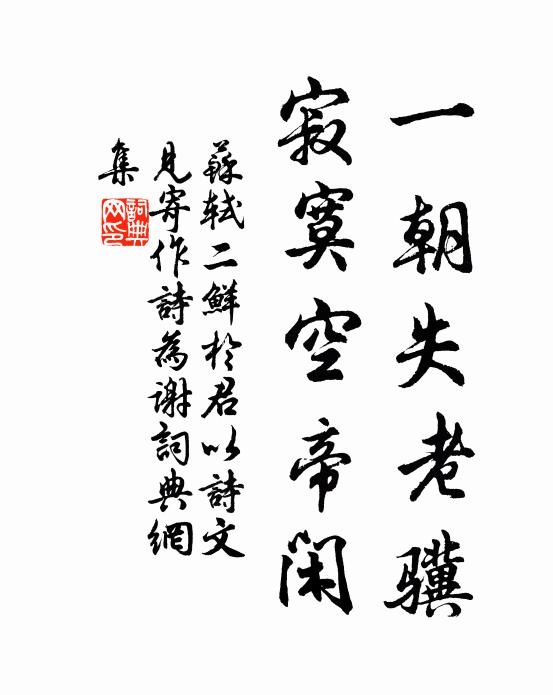 一朝失老骥
寂寞空帝闲
蘇軾二鮮於君以詩文
見寄作詩為謝詞典網
集
詞典網印